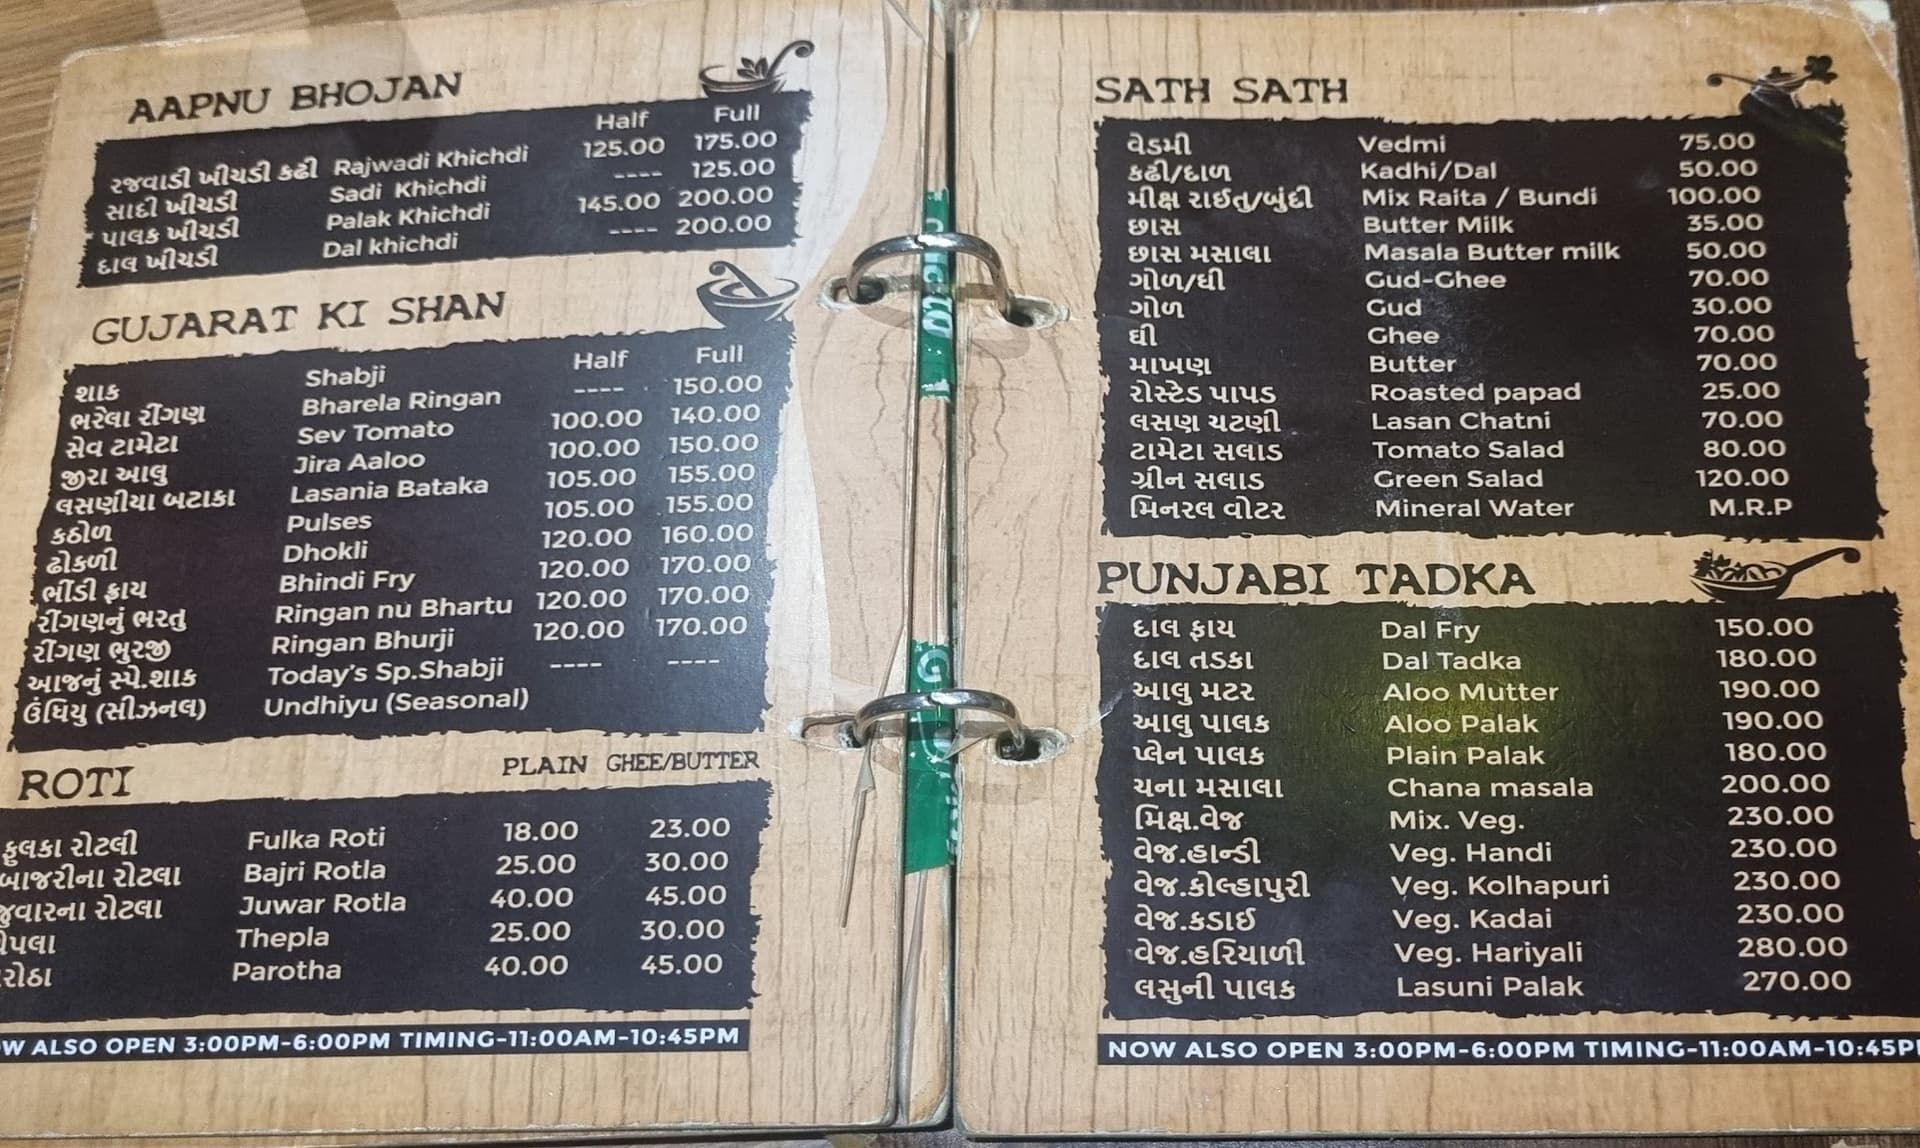 AAPNU BHOJAN
Half Full
રજવાડી ખીચડી કઢી Rajwadi Khichdi 125.00 175.00
સાદી ખીચડી Sadi Khichdi ---- 125.00
પાલક ખીચડી Palak Khichdi 145.00 200.00
દાલ ખીચડી Dal khichdi ---- 200.00
GUJARAT KI SHAN
શાક Shabji Half Full
ભરેલા રીંગણ Bharela Ringan ---- 150.00
સેવ ટામેટા Sev Tomato 100.00 140.00
જીરા આલુ Jira Aaloo 100.00 150.00
લસણીયા બટાકા Lasania Bataka 105.00 155.00
કઠોળ Pulses 105.00 155.00
ઢોકળી Dhokli 120.00 160.00
ભીંડી ફ્રાય Bhindi Fry 120.00 170.00
રીંગણનું ભરતુ Ringan nu Bhartu 120.00 170.00
રીંગણ ભુરજી Ringan Bhurji 120.00 170.00
આજનું સ્પે.શાક Today's Sp.Shabji ---- ----
ઉંધિયુ (સીઝનલ) Undhiyu (Seasonal)
ROTI PLAIN GHEE/BUTTER
ફુલકા રોટલી Fulka Roti 18.00 23.00
બાજરીના રોટલા Bajri Rotla 25.00 30.00
જુવારના રોટલા Juwar Rotla 40.00 45.00
Thepla 25.00 30.00
Parotha 40.00 45.00
ALSO OPEN 3:00PM-6:00PM TIMING-11:00AM-10:45PM
SATH SATH
વેડમી Vedmi 75.00
કઢી/દાળ Kadhi/Dal 50.00
મીક્ષ રાઈતુ/બુંદી Mix Raita / Bundi 100.00
છાસ Butter Milk 35.00
છાસ મસાલા Masala Butter milk 50.00
ગોળ/ઘી Gud-Ghee 70.00
ગોળ Gud 30.00
ઘી Ghee 70.00
માખણ Butter 70.00
રોસ્ટેડ પાપડ Roasted papad 25.00
લસણ ચટણી Lasan Chatni 70.00
ટામેટા સલાડ Tomato Salad 80.00
ગ્રીન સલાડ Green Salad 120.00
મિનરલ વોટર Mineral Water M.R.P
PUNJABI TADKA
દાલ ફ્રાય Dal Fry 150.00
દાલ તડકા Dal Tadka 180.00
આલુ મટર Aloo Mutter 190.00
આલુ પાલક Aloo Palak 190.00
પ્લેન પાલક Plain Palak 180.00
ચના મસાલા Chana masala 200.00
મિક્ષ.વેજ Mix. Veg. 230.00
વેજ.હાન્ડી Veg. Handi 230.00
વેજ.કોલ્હાપુરી Veg. Kolhapuri 230.00
વેજ.કડાઈ Veg. Kadai 230.00
વેજ.હરિયાળી Veg. Hariyali 280.00
લસુની પાલક Lasuni Palak 270.00
NOW ALSO OPEN 3:00PM-6:00PM TIMING-11:00AM-10:45P